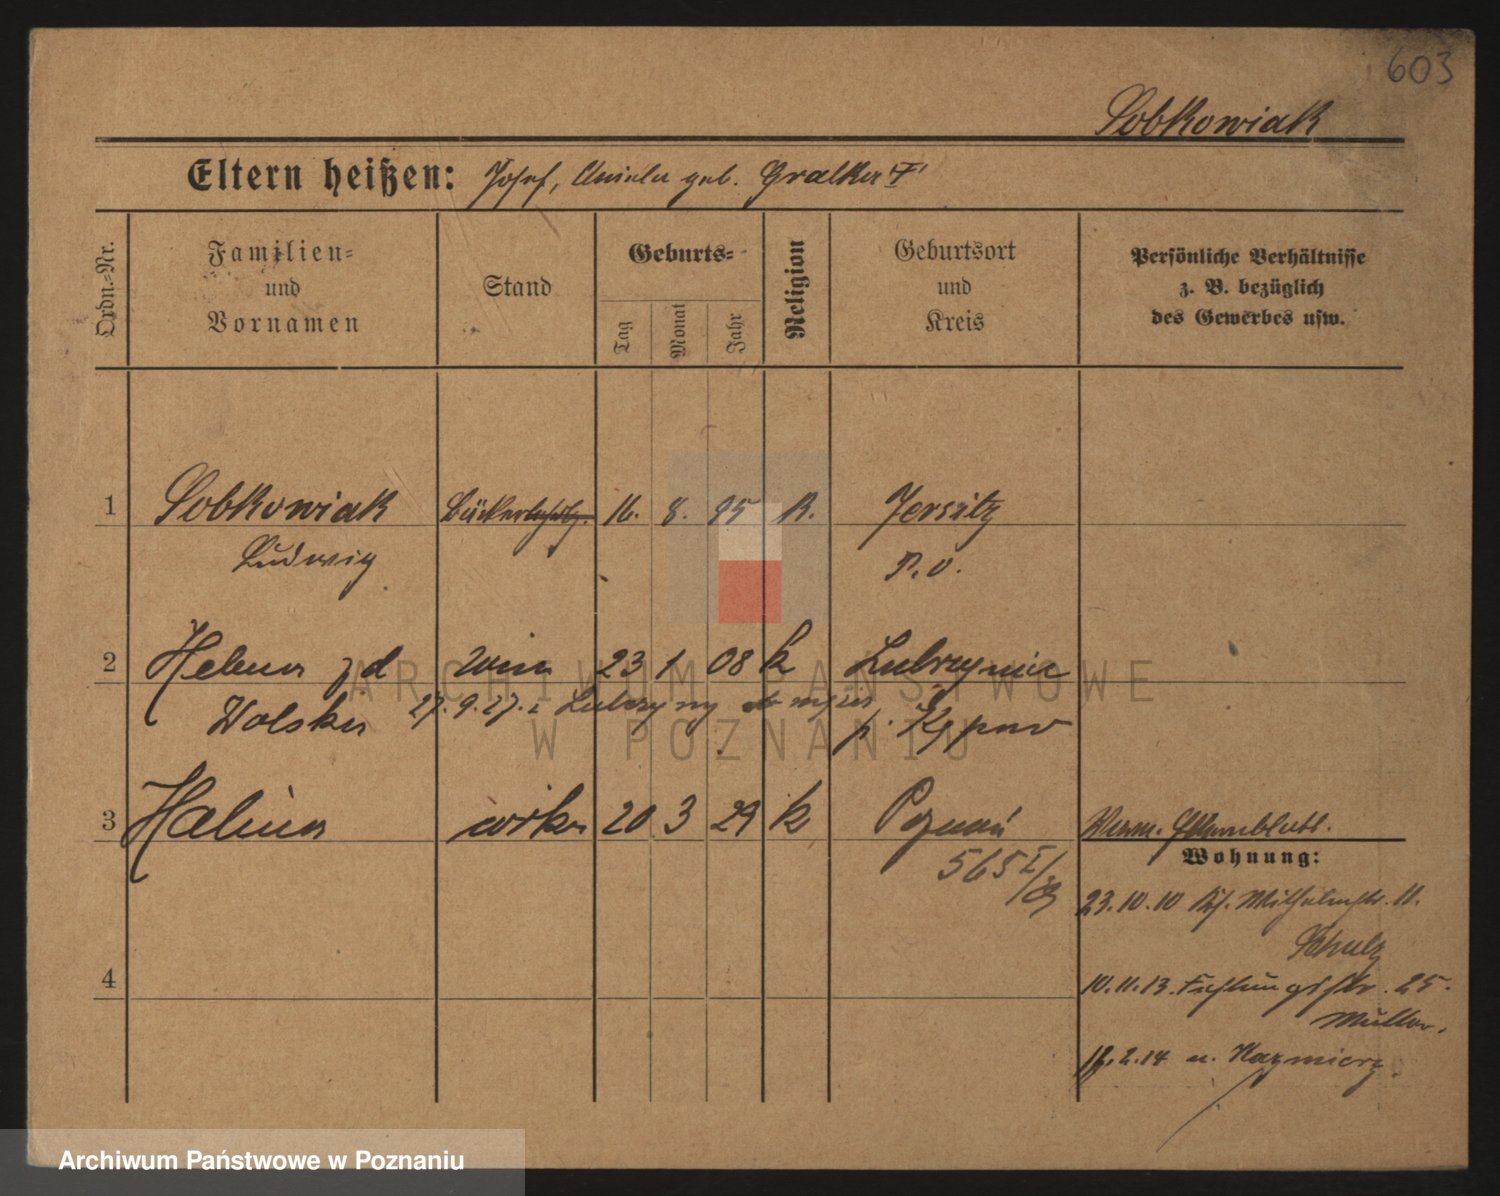 603
Sobkowiak
Eltern heißen: Josef, Aniela geb. Gralka
Ordn.-Nr.
Familien=
und
Vornamen
Stand
Geburts=
Tag
Monat
Jahr
Religion
Geburtsort
und
Kreis
Persönliche Verhältnisse
z. B. bezüglich
des Gewerbes usw.
1 Sobkowiak 16. 8. 95 K. Jersitz
Ludwig P. O.
2 Helena zd 23 1 08 k
Wolska 27.9.27. p.
3 Halina córka 20 3 29 k Poznań
565 I/
Wohnung:
23.10.10 Wilhelmstr. 11.
Schulz
10.11.13. 25.
Müller.
2.14 n. Kazmierz
4
ARCHIWUM PAŃSTWOWE
W POZNANIU
Archiwum Państwowe w Poznaniu